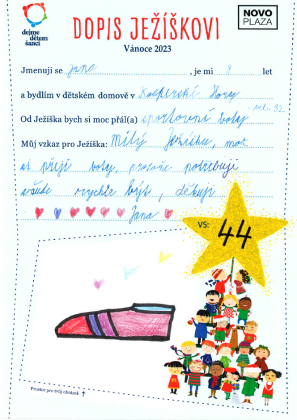 dejme
dětem
šanci
NOVO
PLAZA
DOPIS JEŽÍŠKOVI
Vánoce 2023
Jmenuji se Jana, je mi 9 let
a bydlím v dětském domově v Kašperské Hory
Od Ježíška bych si moc přál(a) sportovní boty
vel. 32
Můj vzkaz pro Ježíška: Milý Ježíšku, moc
si přeji boty, protože potřebuji
všude rychle být, děkuji
Jana
VS: 44
Prostor pro můj obrázek